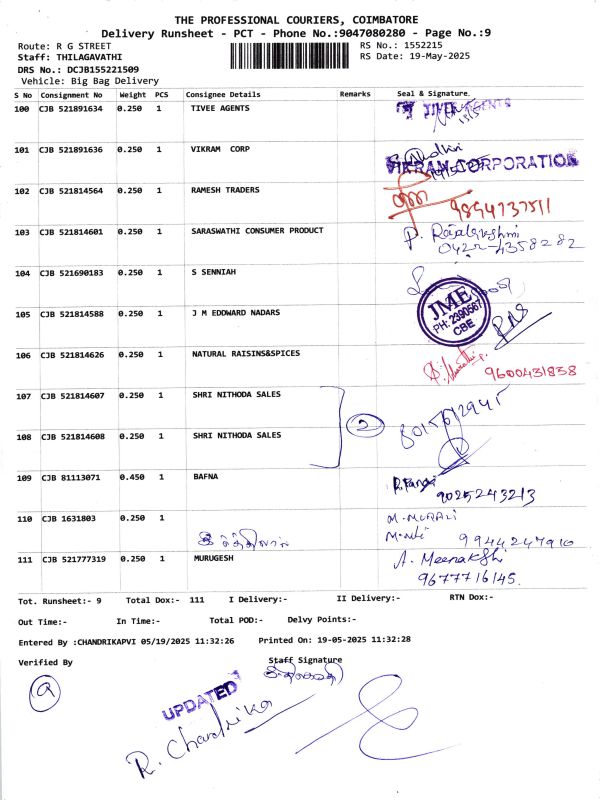 THE PROFESSIONAL COURIERS, COIMBATORE
Delivery Runsheet - PCT - Phone No.:9047080280 - Page No.:9
Route: R G STREET
RS No.: 1552215
Staff: THILAGAVATHI
RS Date: 19-May-2025
DRS No.: DCJB155221509
Vehicle: Big Bag Delivery
S No Consignment No Weight PCS Consignee Details Remarks Seal & Signature.
100 CJB 521891634 0.250 1 TIVEE AGENTS TIVEE AGENTS
101 CJB 521891636 0.250 1 VIKRAM CORP VIKRAM CORPORATION
102 CJB 521814564 0.250 1 RAMESH TRADERS 9894737511
103 CJB 521814601 0.250 1 SARASWATHI CONSUMER PRODUCT P. Rajalakshmi
0422-4358282
104 CJB 521690183 0.250 1 S SENNIAH
105 CJB 521814588 0.250 1 J M EDDWARD NADARS JME
PH: 2390567
CBE
106 CJB 521814626 0.250 1 NATURAL RAISINS&SPICES 9600431838
107 CJB 521814607 0.250 1 SHRI NITHODA SALES
2 8015612945
108 CJB 521814608 0.250 1 SHRI NITHODA SALES
109 CJB 81113071 0.450 1 BAFNA
9025243213
110 CJB 1631803 0.250 1 M. MURALI
9944247910
111 CJB 521777319 0.250 1 MURUGESH A. Meenakshi
9677716145.
Tot. Runsheet:- 9 Total Dox:- 111 I Delivery:- II Delivery:- RTN Dox:-
Out Time:- In Time:- Total POD:- Delvy Points:-
Entered By :CHANDRIKAPVI 05/19/2025 11:32:26 Printed On: 19-05-2025 11:32:28
Verified By Staff Signature
UPDATED
R. Chandrika